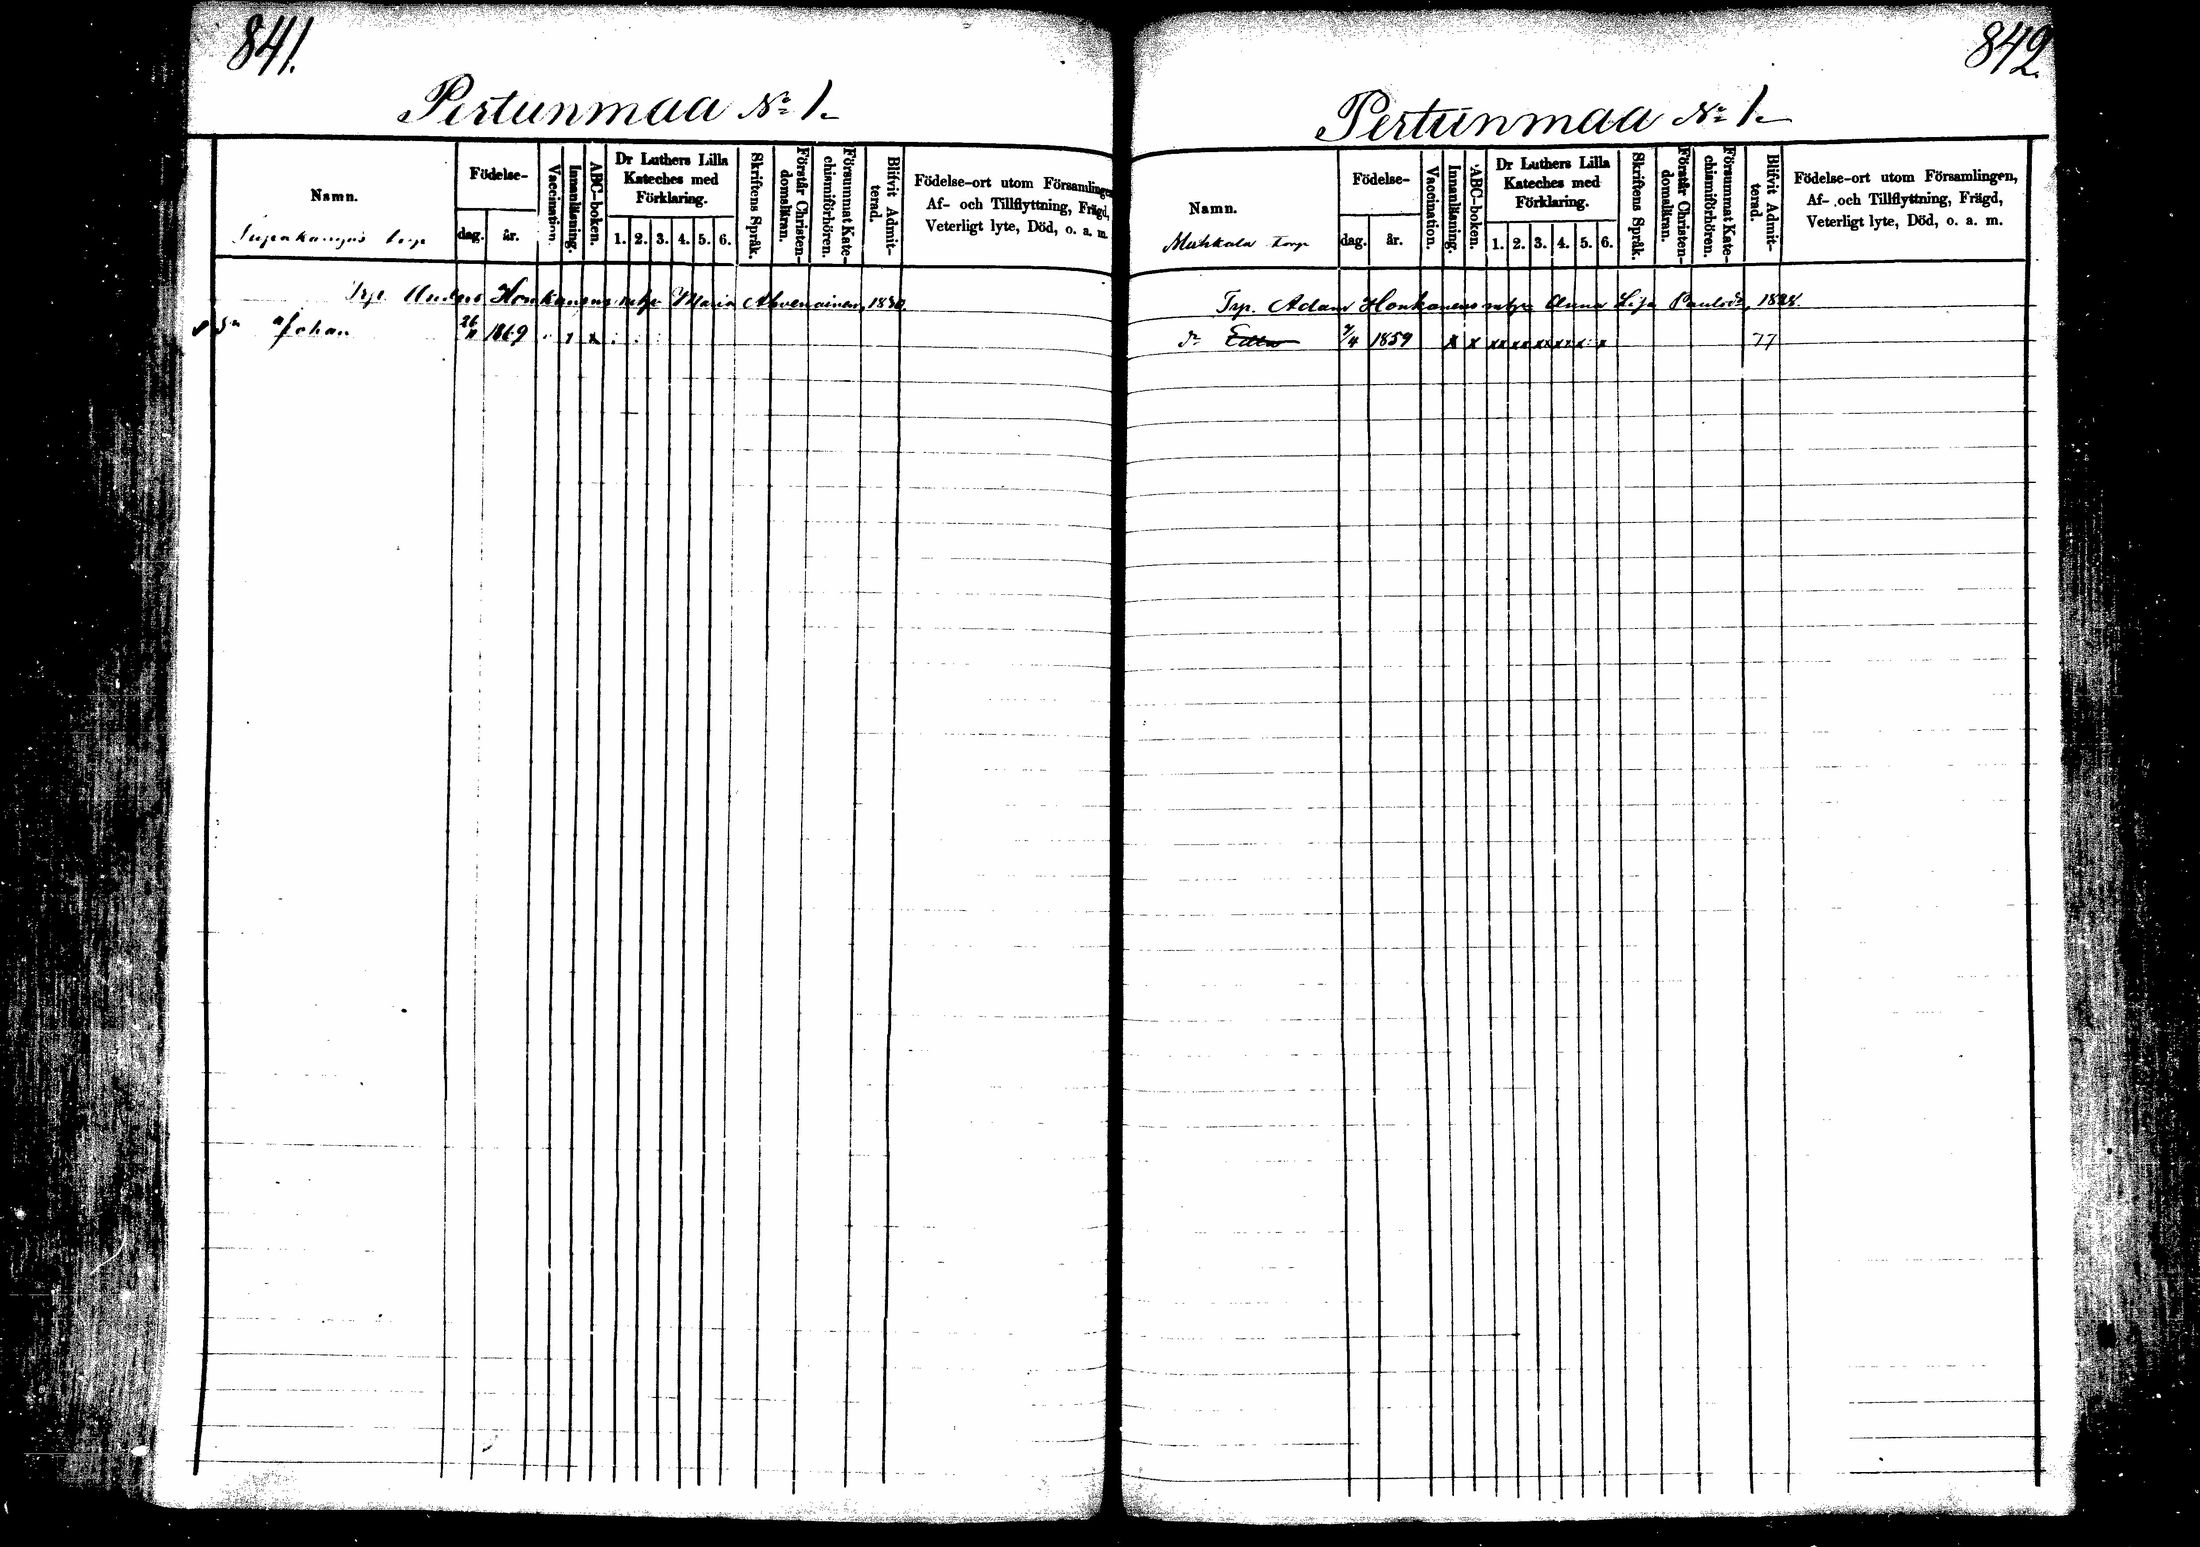 841.
Pertunmaa No 1.
Namn.
Födelse-
dag.
år.
Vaccination.
Innanläsning.
ABC-boken.
Dr Luthers Lilla
Kateches med
Förklaring.
1. 2. 3. 4. 5. 6.
Skriftens Språk.
Förstår Christen-
domsläran.
Försummat Kate-
chismiförhören.
Blifvit Admit-
terad.
Födelse-ort utom Församlingen,
Af- och Tillflyttning, Frägd,
Veterligt lyte, Död, o. a. m.
torp
Trp. Anders Honkanens Maria Ahvenainen, 1830.
Sn Johan 26/11 1869 x x
842.
Pertunmaa No 1.
Namn.
Muhkala torp
Födelse-
dag.
år.
Vaccination.
Innanläsning.
ABC-boken.
Dr Luthers Lilla
Kateches med
Förklaring.
1. 2. 3. 4. 5. 6.
Skriftens Språk.
Förstår Christen-
domsläran.
Försummat Kate-
chismiförhören.
Blifvit Admit-
terad.
Födelse-ort utom Församlingen,
Af- och Tillflyttning, Frägd,
Veterligt lyte, Död, o. a. m.
Trp. Adam Honkanens Anna Lisa Paulsdr, 1828.
dr 9/4 1859 x x xx xx xx xx x x 77